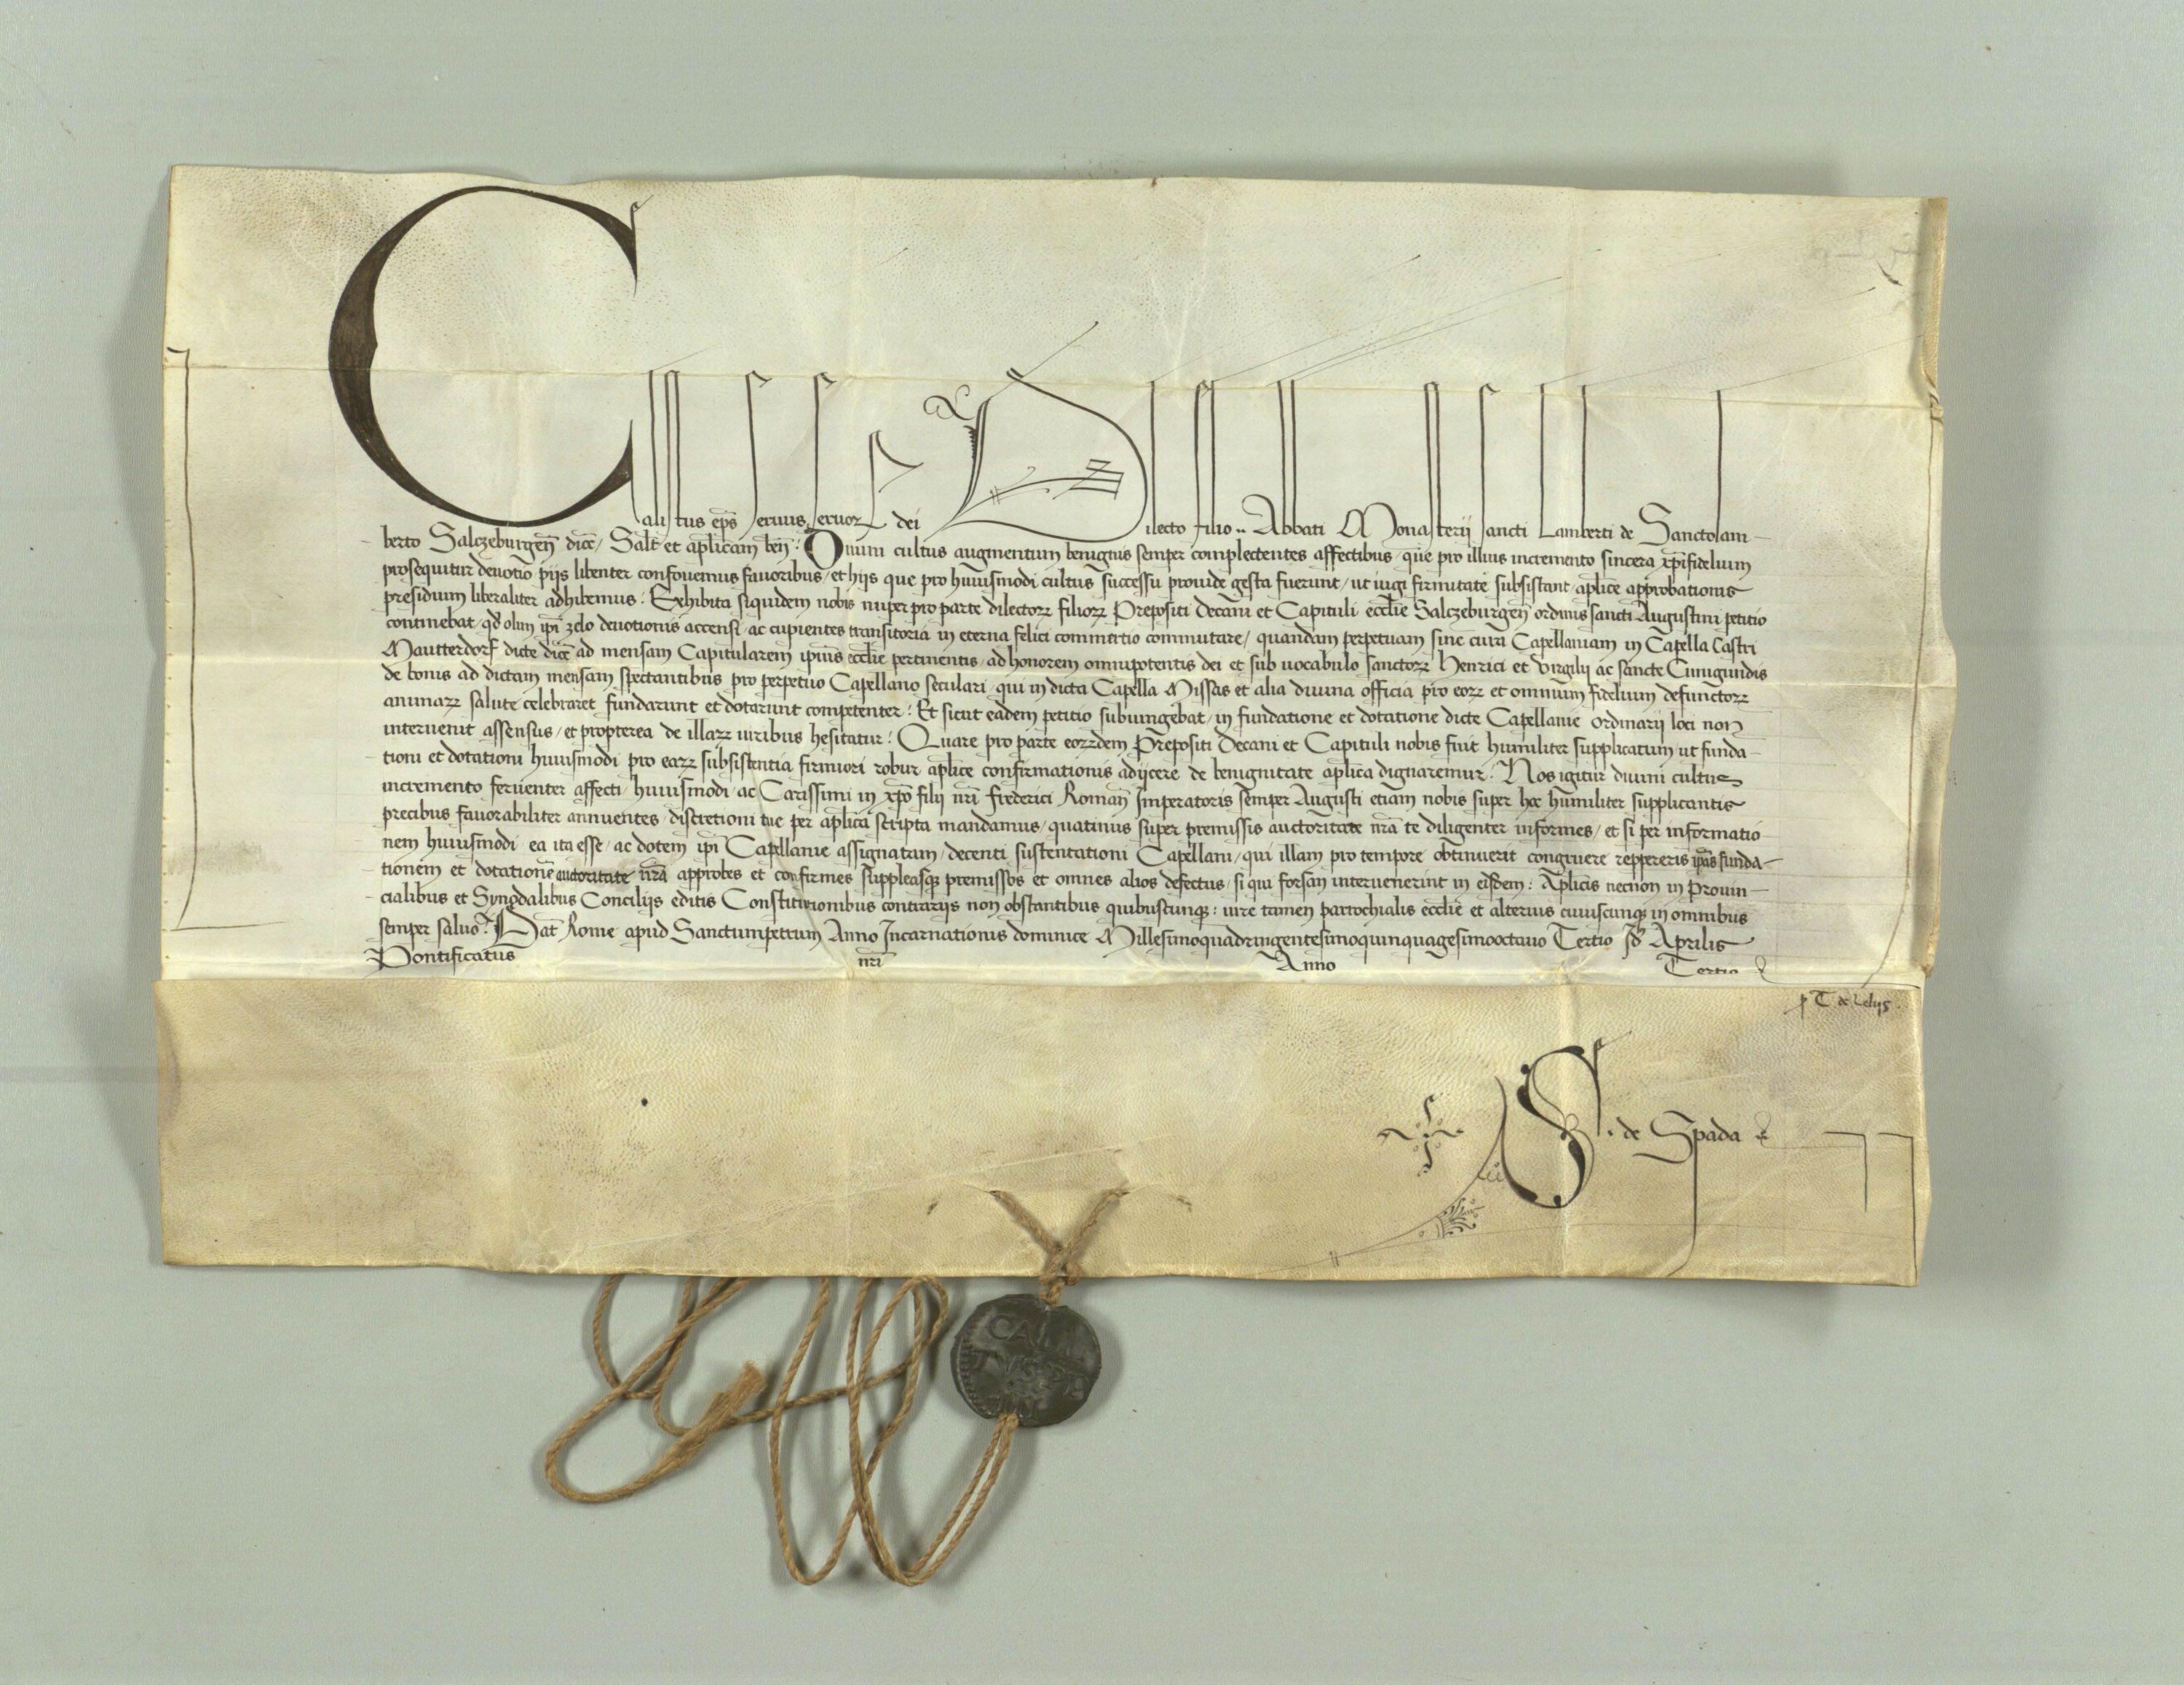 Calistus ep̄s seruus seruoꝝ dei Dilecto filio .. Abbati Monasterij sancti Lamberti de Sanctolam-
berto Salczeburgen̄ dioc̄ / Salt̄ et ap̄licam ben̄ : Diuini cultus augmentum benignis semper complectentes affectibus / que pro illius incremento sincera xp̄ifidelium
prosequitur deuotio pijs libenter confouemus fauoribus / et hijs que pro huiusmodi cultus successu prouide gesta fuerunt / ut iugi firmitate subsistant / ap̄lice approbationis
presidium liberaliter adhibemus : Exhibita siquidem nobis nuper pro parte dilectoꝝ filioꝝ Prepositi Decani et Capituli ecclīe Salczeburgen̄ ordinis sancti Augustini petitio
continebat / qd̄ olim ip̄i zelo deuotionis accensi / ac cupientes transitoria in eterna felici commertio commutare / quandam perpetuam sine cura Capellaniam in Capella Castri
Mautterdorf dicte dioc̄ ad mensam Capitularem ipius ecclīe pertinentis / ad honorem omnipotentis dei et sub uocabulo sanctoꝝ Henrici et Virgilij ac sancte Cunigundis
de bonis ad dictam mensam spectantibus pro perpetuo Capellano seculari / qui in dicta Capella Missas et alia diuina officia pro eoꝝ et omnium fidelium defunctoꝝ
animaꝝ salute celebraret fundarunt et dotarunt competenter : Et sicut eadem petitio subiungebat / in fundatione et dotatione dicte Capellanie ordinarij loci non
interuenit assensus / et propterea de illaꝝ uiribus hesitatur : Quare pro parte eoꝝdem Prepositi Decani et Capituli nobis fuit humiliter supplicatum / ut funda-
tioni et dotationi huiusmodi pro eaꝝ subsistentia firmiori robur ap̄lice confirmationis adijcere de benignitate ap̄lica dignaremur : Nos igitur diuini cultus
incremento feruenter affecti / huiusmodi / ac Carissimi in xp̄o filij nr̄i Frederici Roman̄ Imperatoris semper Augusti etiam nobis super hoc humiliter supplicantis
precibus fauorabiliter annuentes / discretioni tue per ap̄lica scripta mandamus / quatinus super premissis auctoritate nr̄a te diligenter informes / et si per informatio-
nem huiusmodi / ea ita esse / ac dotem ip̄i Capellanie assignatam / decenti sustentationi Capellani / qui illam pro tempore obtinuerit congruere reppereris ip̄as funda-
tionem et dotationē auctoritate nr̄a approbes et confirmes suppleasqꝫ premissos et omnes alios defectus / si qui forsan interuenerint in eisdem : Ap̄licis necnon in Prouin-
cialibus et Synodalibus Concilijs editis Constitutionibus contrarijs non obstantibus quibuscunqꝫ : iure tamen parrochialis ecclīe et alterius cuiuscunqꝫ in omnibus
semper saluo : Dat̄ Rome apud Sanctumpetrum Anno Incarnationis dominice Millesimoquadringentesimoquinquagesimooctauo Tertio Id̄ Aprilis
Pontificatus nr̄i Anno Tertio
p T de Lelijs
S. de Spada
CALI
TVS PP
III